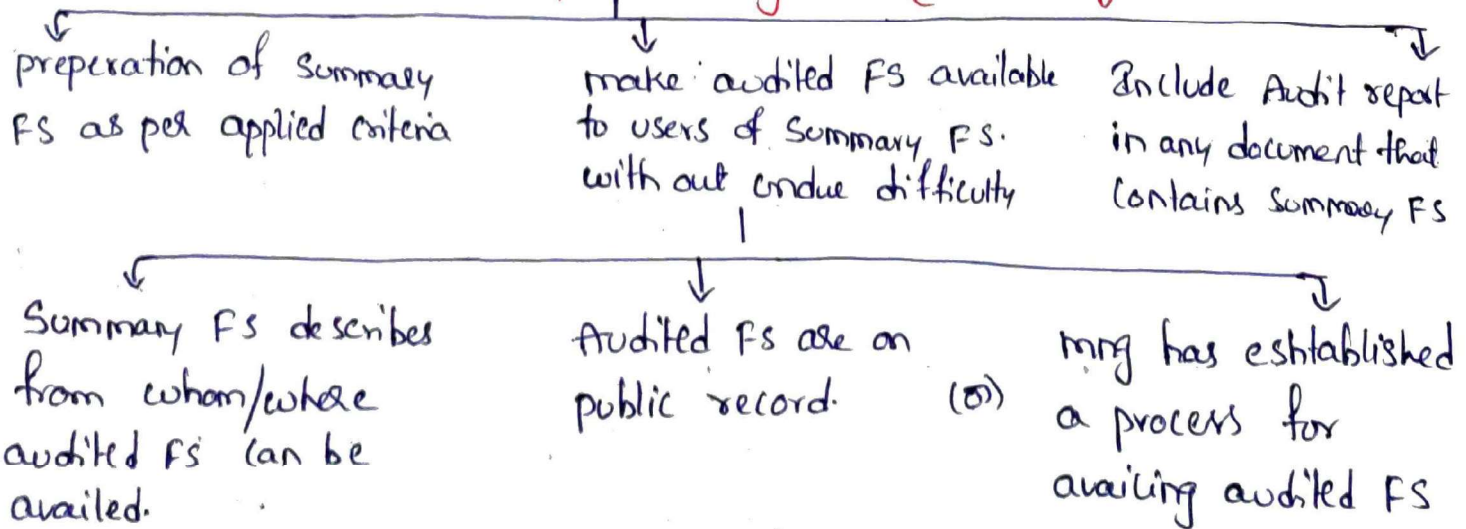 preperation of Summary
FS as per applied criteria
make audited FS available
to users of Summary FS.
with out undue difficulty
Include Audit report
in any document that
Contains Summary FS
Summary FS describes
from whom/where
audited FS can be
availed.
Audited FS are on
public record.
(or)
mng has eshtablished
a process for
availing audited FS